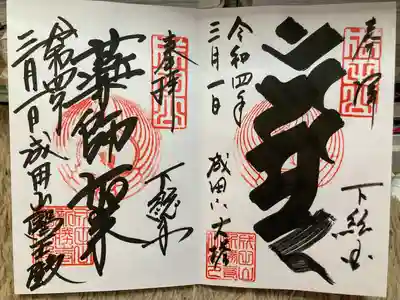 奉拝
下総国
令和四年
三月一日
成田山大塔
奉拝
下総国
薬師
令和四年
三月一日
成田山醫王殿